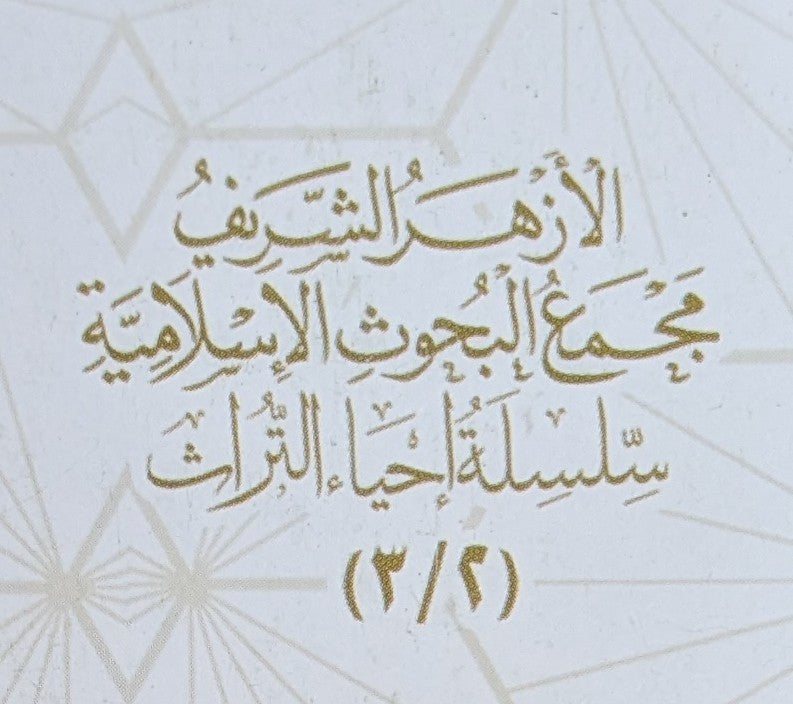 الأَزْهَرُ الشَّرِيفُ
مَجْمَعُ الْبُحُوثِ الإِسْلَامِيَّةِ
سِلْسِلَةُ إِحْيَاءِ التُّرَاثِ
(٣/٢)